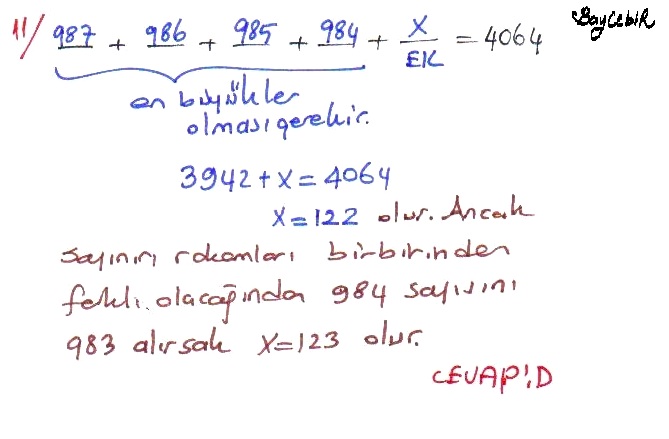 11/ 987 + 986 + 985 + 984 + X/EK = 4064
BayCebiR
en büyükler
olması gerekir.
3942 + X = 4064
X = 122 olur. Ancak
sayının rakamları birbirinden
farklı olacağından 984 sayısını
983 alırsak X=123 olur.
CEVAP:D